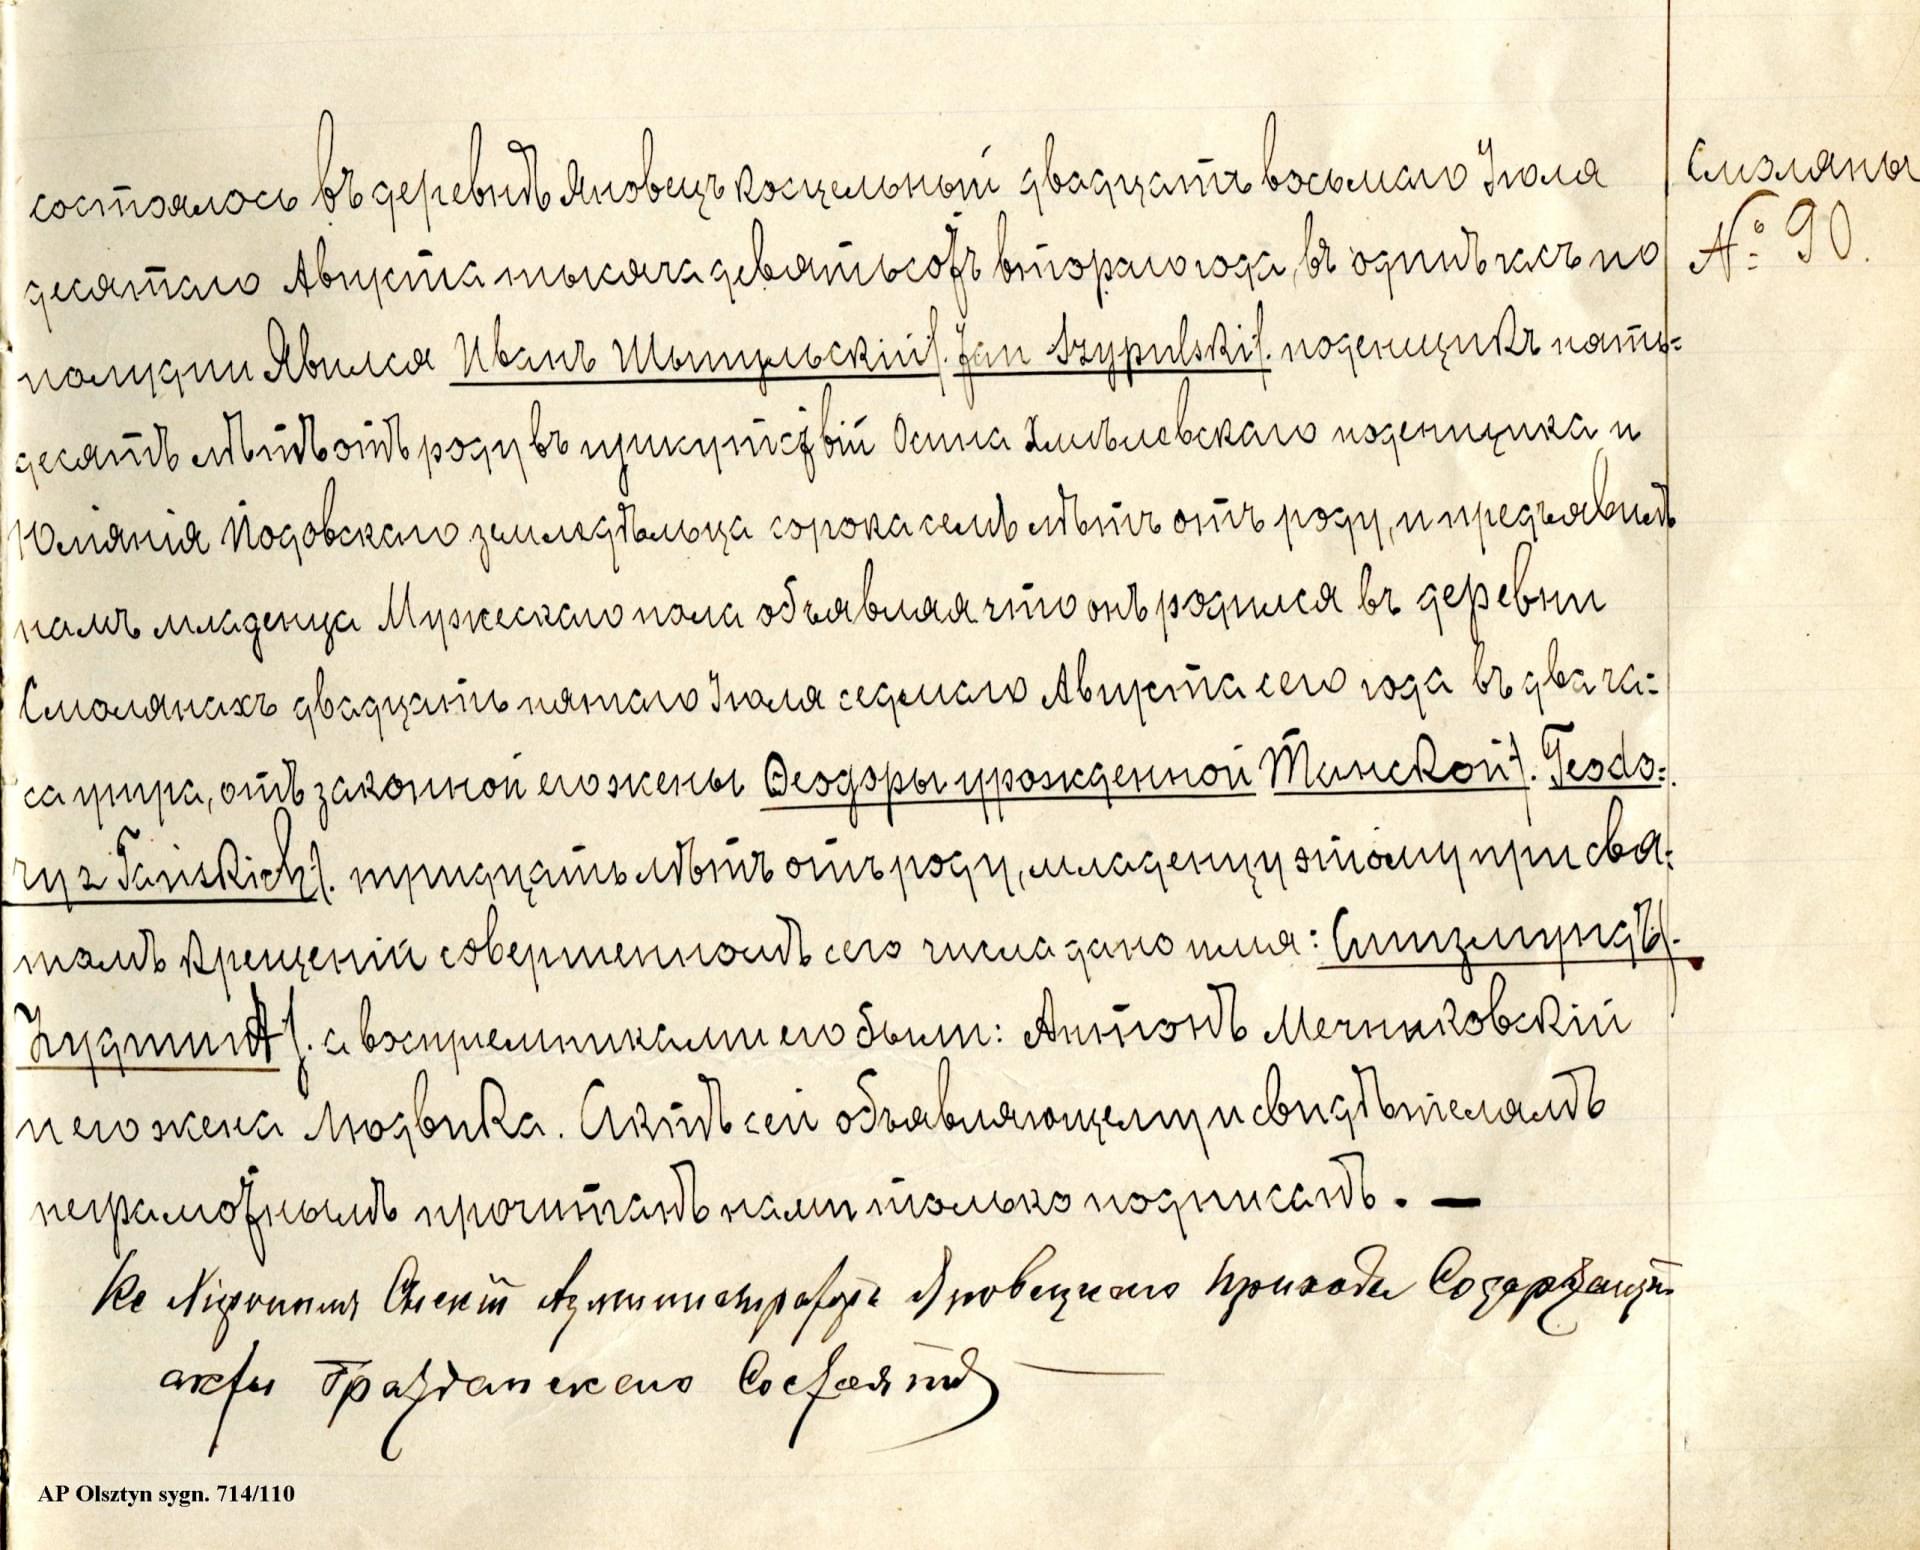 состоялось въ деревнѣ Яновецъ косцельный двадцать восьмаго Іюля
Смоляны
№ 90.
десятаго Августа тысяча девятьсотъ втораго года, въ одинъ часъ по
полудни Явился Иванъ Шыпульскій /. Jan Szypulski /. поденщикъ пять-
десятъ лѣтъ отъ роду въ присутствій Осипа поденщика и
Юліянія землѣдѣльца сорока семъ лѣтъ отъ роду, и предъявилъ
намъ младенца Мужескаго пола объявляя что онъ родился въ деревни
Смолянахъ двадцать пятаго Іюля седмаго Августа сего года въ два ча-
са утра, отъ законной его жены Ѳеодоры урожденной Танской /. Teodo-
ry z Tańskich /. тридцать лѣтъ отъ роду, младенцу этому при свя-
томъ крещеній совершенномъ сего числа дано имя: Сигизмундъ /.
Zygmunt /. а воспріемниками его были: Антонъ Мечниковскій
и его жена Людвика. Актъ сей объявляющему и свидѣтелямъ
неграмотнымъ прочитанъ нами только подписанъ. —
Кс Администраторъ Яновецкаго Прихода Содержащій
акты Гражданскаго Состоянія
AP Olsztyn sygn. 714/110